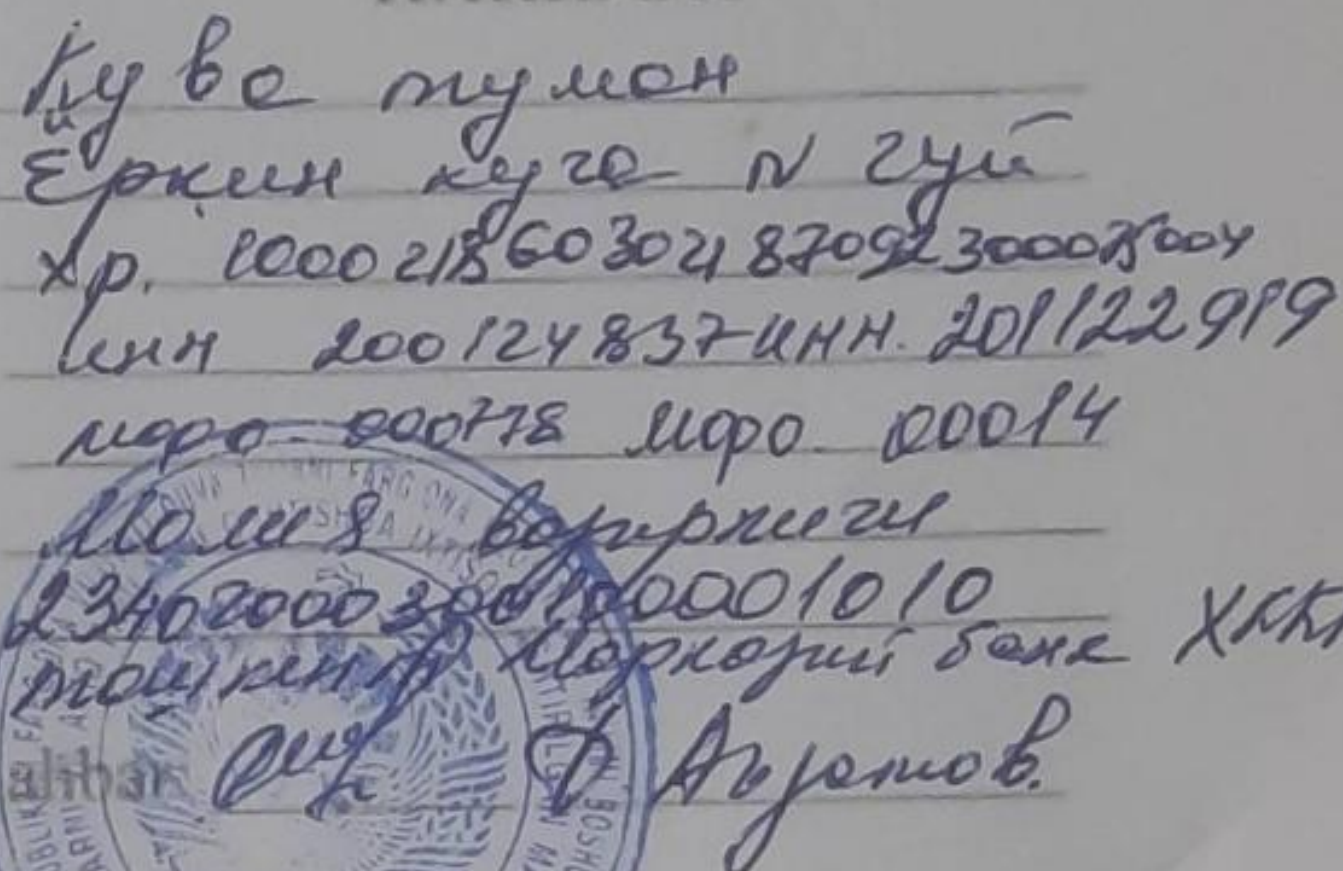 Кува туман
Ёркин куча N 2 уй
хр. 100021860302187092300075004
инн 200124837 ИНН. 201122919
мфо 000778 мфо. 00014
Молия вазирлиги
23402000300100001010
тошкент Марказий банк ХККМ
Аъзамов.